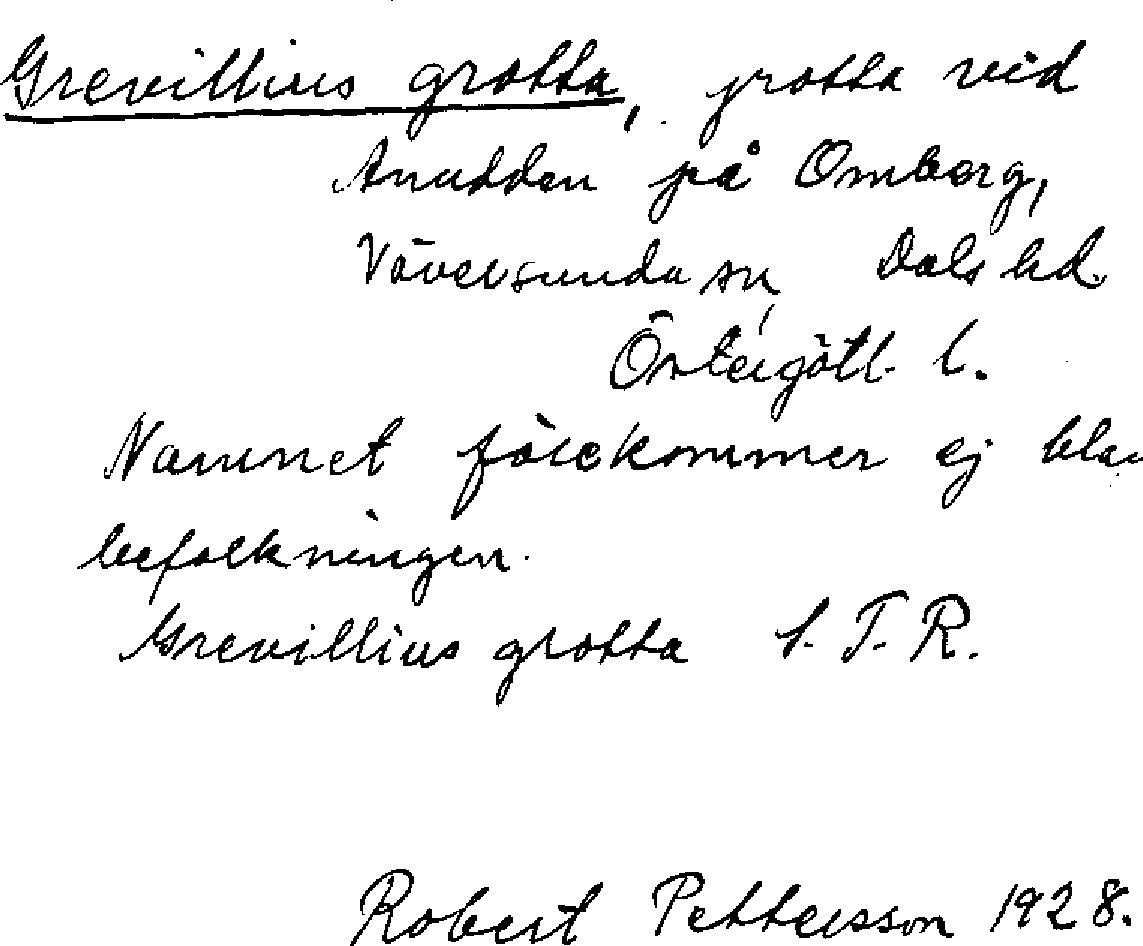 Grevillius grotta, grotta vid
Anudden på Omberg,
Väversunda sn, Dals hd.
Östergötl. l.
Namnet förekommer ej blan
befolkningen.
Grevillius grotta S. T. R.
Robert Pettersson 1928.